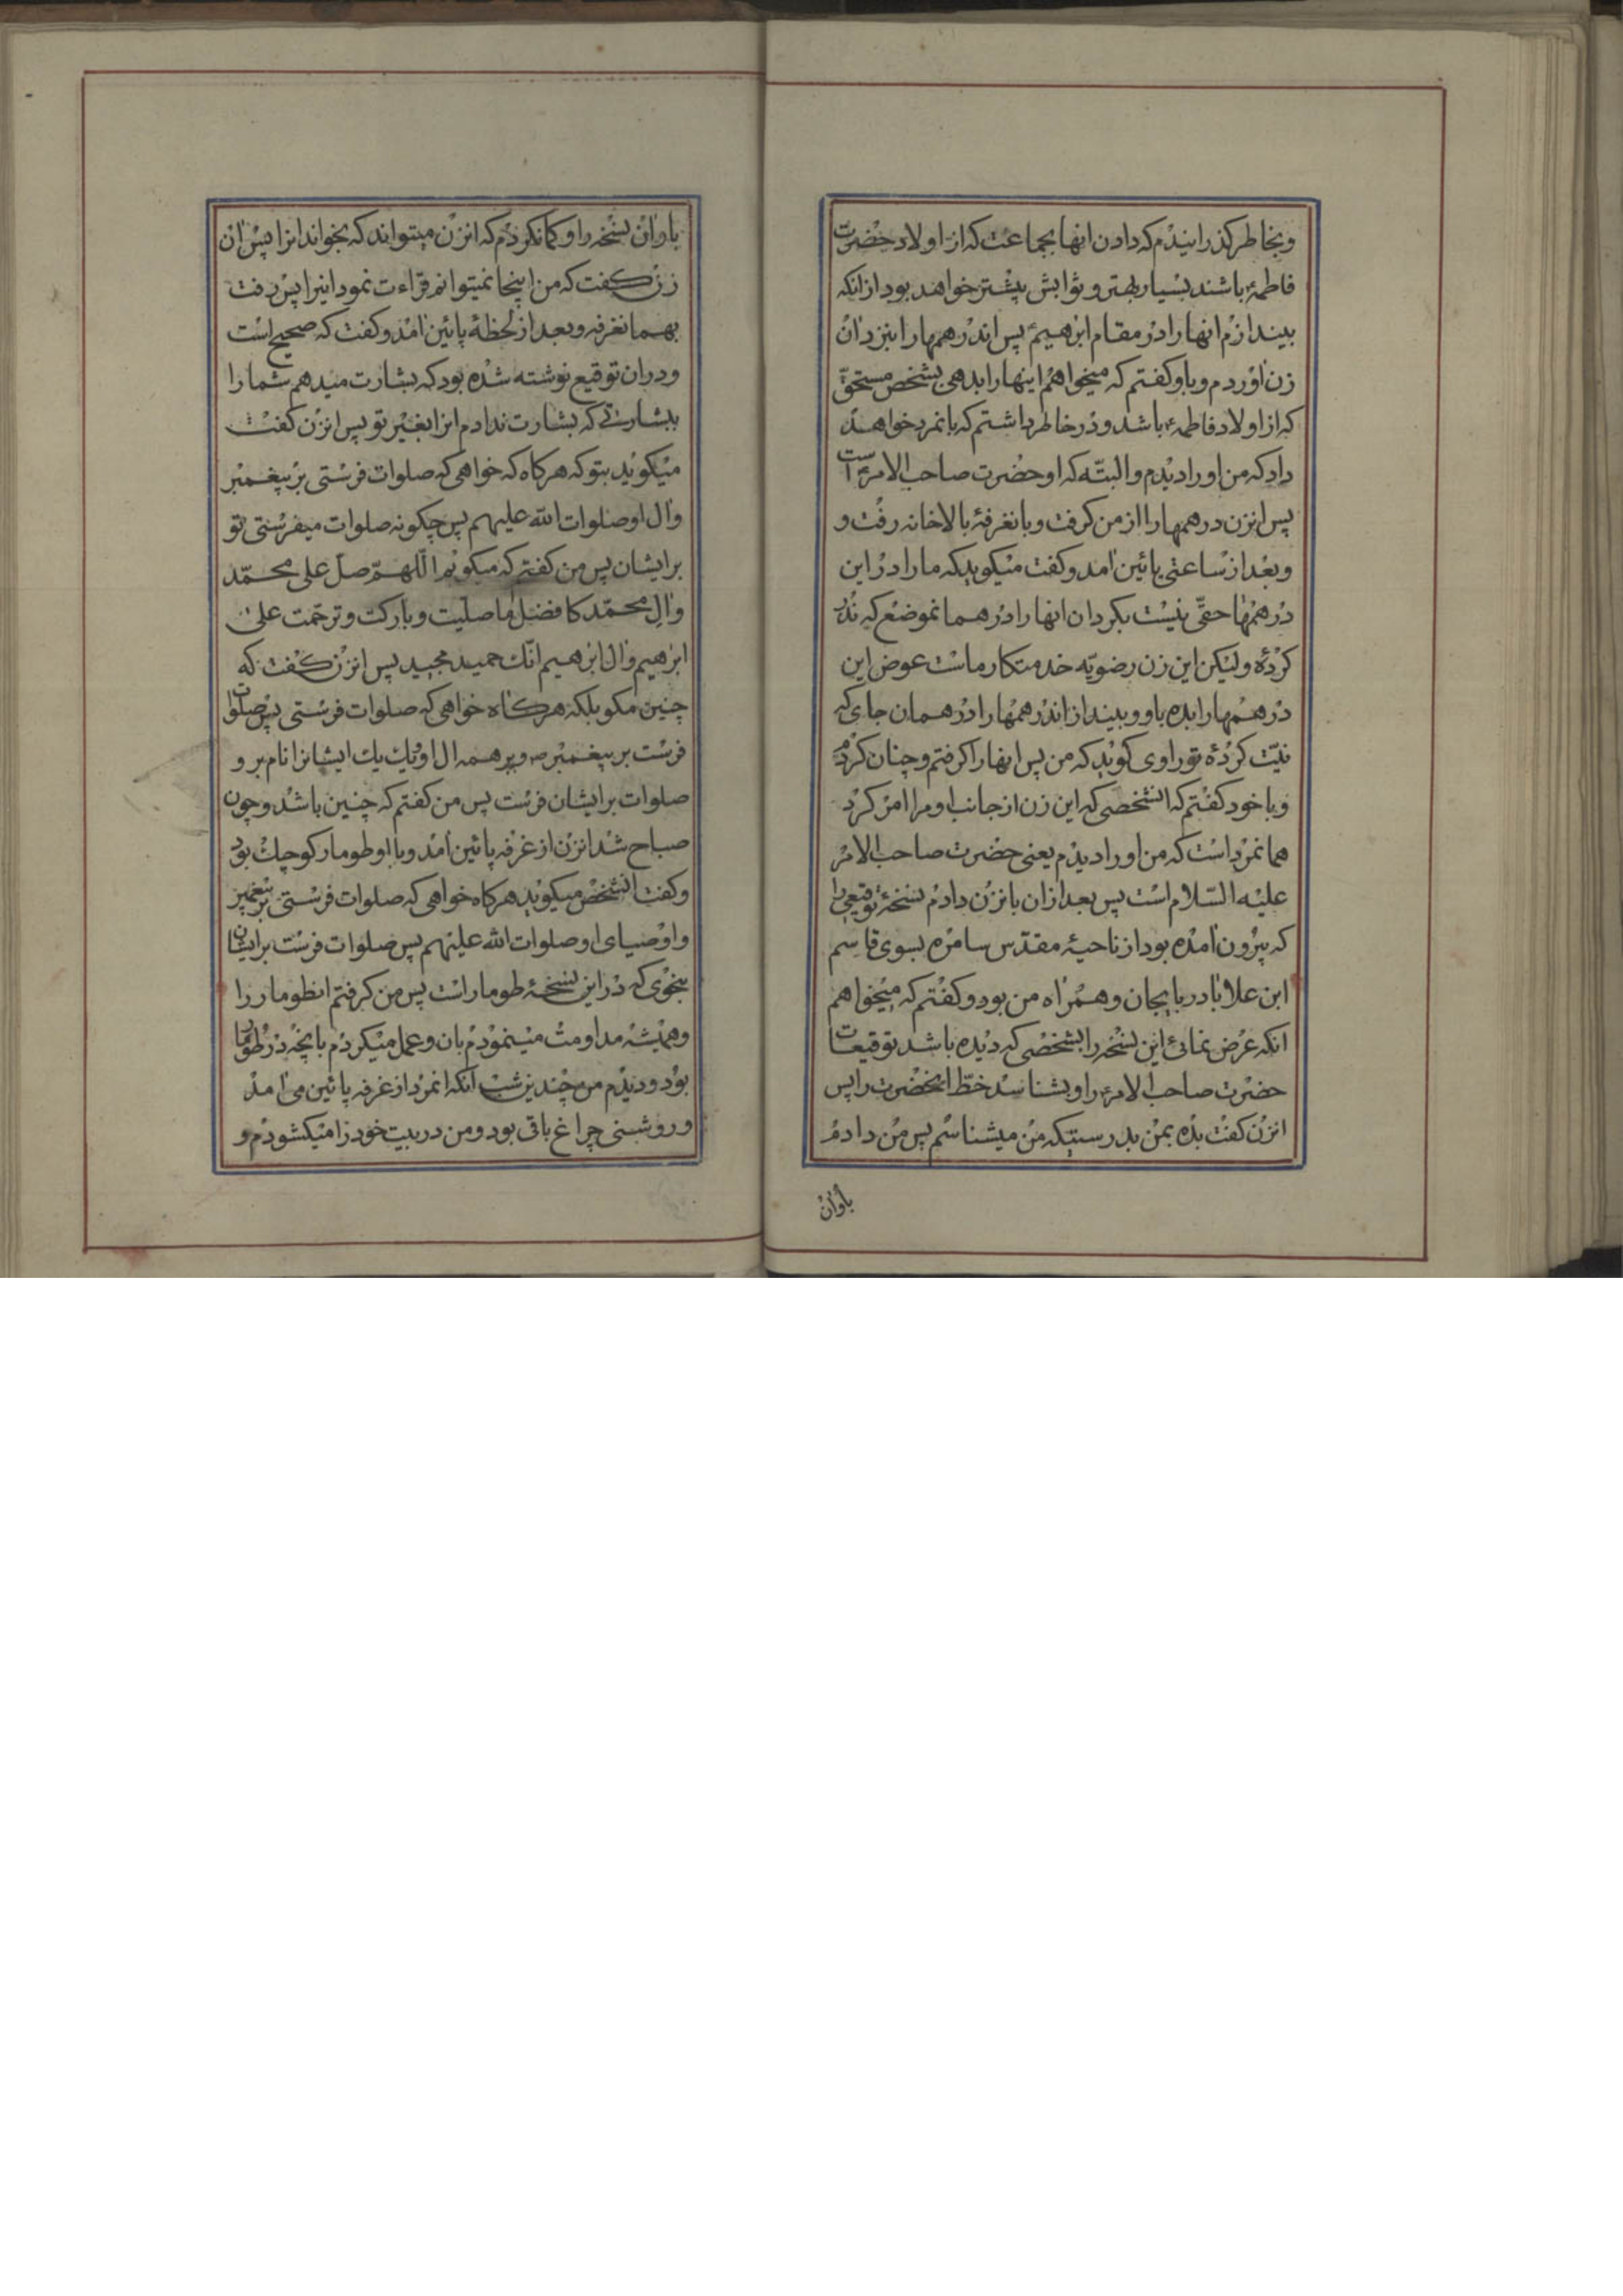 وبخاطر کذرانیدم که دادن انها بجماعت که از اولاد حضرت
فاطمهٔ باشند بسیار بهتر و ثوابش بیشتر خواهد بود از انکه
بیندازم انها را در مقام ابرهیمؑ پس اندرهمها را بنزد ان
زن اوردم و باو کفتم که میخواهم اینها را بدهی بشخص مستحق
که از اولاد فاطمهؑ باشد و در خاطر داشتم که بانمرد خواهد
داد که من او را دیدم و البتّه که او حضرت صاحب الامرؑ است
پس انزن درهمها را از من کرفت و بانغرفهٔ بالاخانه رفت و
و بعد از ساعتی پائین امد و کفت میکوید که ما را در این
درهمها حقّی نیست بکردان انها را در همانموضع که نذر
کردهٔ ولیکن این زن رضویّه خدمتکار ماست عوض این
درهمها را بده باو و بینداز اندرهمها را در همان جای که
نیّت کردهٔ تو راوی کوید که من پس انها را کرفتم و چنان کردم
و با خود کفتم که انشخصی که این زن از جانب او مرا امر کرد
همانمرد است که من او را دیدم یعنی حضرت صاحب الامر
علیه السّلام است پس بعد از ان بانزن دادم نسخهٔ توقیعی را
که بیرون امده بود از ناحیهٔ مقدّس سامره بسوی قاسم
ابن علا باذربایجان و همراه من بود و کفتم که میخواهم
انکه عرض نمائی این نسخه را بشخصی که دیده باشد توقیعات
حضرت صاحب الامرؑ را و بشناسد خطّ انحضرت را پس
انزن کفت بده بمن بدرستیکه من میشناسم پس من دادم
باوان
باوان نسخه را و کمانکردم که انزن میتواند که بخواند انرا پس ان
زن کفت که من اینجا نمیتوانم قراءت نمود اینرا پس رفت
بهمانغرفه و بعد از لحظهٔ پائین امد و کفت که صحیح است
و در ان توقیع نوشته شده بود که بشارت میدهم شما را
ببشارتی که بشارت ندادم انرا بغیر تو پس انزن کفت
میکوید بتو که هرکاه که خواهی که صلوات فرستی بر پیغمبر
وال او صلوات الله علیهم پس چکونه صلوات میفرستی تو
بر ایشان پس من کفتم که میکویم اللّهمّ صلّ علی محمّد
وال محمّد کافضل ما صلّیت و بارکت و ترحّمت علی
ابرهیم وال ابرهیم انّک حمید مجید پس انزن کفت که
چنین مکو بلکه هرکاه خواهی که صلوات فرستی پس صلوات
فرست بر پیغمبرص و بر همه ال او و یک یک ایشانرا نام بر و
صلوات بر ایشان فرست پس من کفتم که چنین باشد و چون
صباح شد انزن از غرفه پائین امد و با او طومار کوچک بود
و کفت انشخص میکوید هرکاه خواهی که صلوات فرستی بر پیغمبر
و اوصیای او صلوات الله علیهم پس صلوات فرست بر ایشان
بنحوی که در این نسخهٔ طومار است پس من کرفتم انطومار را
و همیشه مداومت مینمودم بان و عمل میکردم بانچه در طومار
بود و دیدم من چندین شب انکه انمرد از غرفه پائین می امد
و روشنی چراغ باقی بود و من در بیت خود را میکشودم و